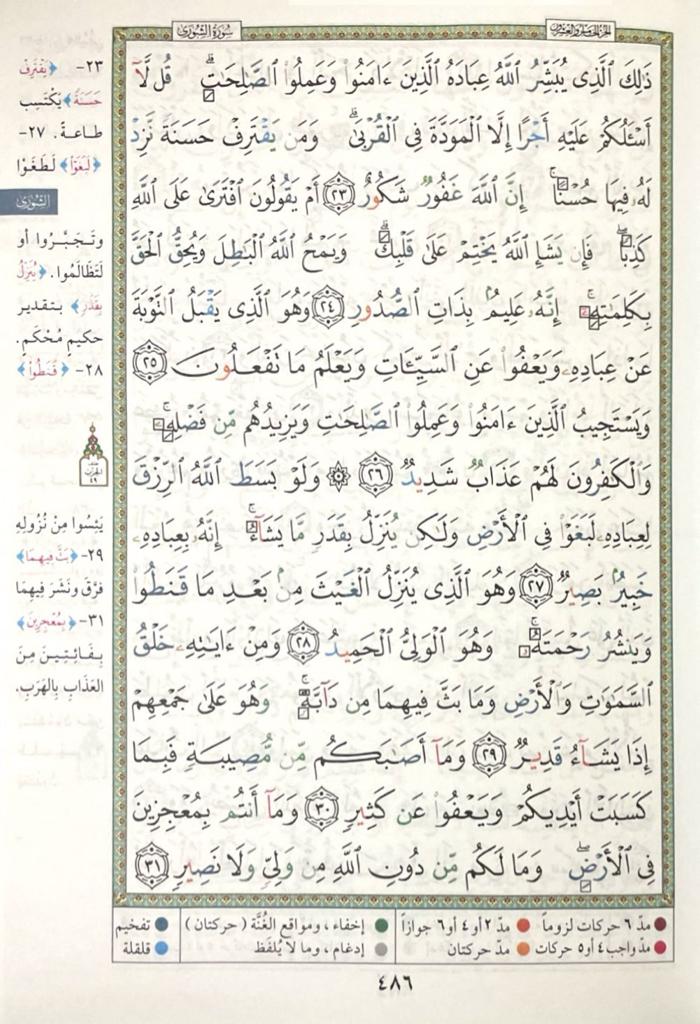 سُورَةُ الشُّورَىٰ
ذَٰلِكَ ٱلَّذِى يُبَشِّرُ ٱللَّهُ عِبَادَهُ ٱلَّذِينَ ءَامَنُوا۟ وَعَمِلُوا۟ ٱلصَّـٰلِحَـٰتِ ۗ قُل لَّآ
أَسْـَٔلُكُمْ عَلَيْهِ أَجْرًا إِلَّا ٱلْمَوَدَّةَ فِى ٱلْقُرْبَىٰ ۗ وَمَن يَقْتَرِفْ حَسَنَةً نَّزِدْ
لَهُۥ فِيهَا حُسْنًا ۚ إِنَّ ٱللَّهَ غَفُورٌ شَكُورٌ ٢٣ أَمْ يَقُولُونَ ٱفْتَرَىٰ عَلَى ٱللَّهِ
كَذِبًا ۖ فَإِن يَشَإِ ٱللَّهُ يَخْتِمْ عَلَىٰ قَلْبِكَ ۗ وَيَمْحُ ٱللَّهُ ٱلْبَـٰطِلَ وَيُحِقُّ ٱلْحَقَّ
بِكَلِمَـٰتِهِۦٓ ۚ إِنَّهُۥ عَلِيمٌۢ بِذَاتِ ٱلصُّدُورِ ٢٤ وَهُوَ ٱلَّذِى يَقْبَلُ ٱلتَّوْبَةَ
عَنْ عِبَادِهِۦ وَيَعْفُوا۟ عَنِ ٱلسَّيِّـَٔاتِ وَيَعْلَمُ مَا تَفْعَلُونَ ٢٥
وَيَسْتَجِيبُ ٱلَّذِينَ ءَامَنُوا۟ وَعَمِلُوا۟ ٱلصَّـٰلِحَـٰتِ وَيَزِيدُهُم مِّن فَضْلِهِۦ ۚ
وَٱلْكَـٰفِرُونَ لَهُمْ عَذَابٌ شَدِيدٌ ٢٦ ۞ وَلَوْ بَسَطَ ٱللَّهُ ٱلرِّزْقَ
لِعِبَادِهِۦ لَبَغَوْا۟ فِى ٱلْأَرْضِ وَلَـٰكِن يُنَزِّلُ بِقَدَرٍ مَّا يَشَآءُ ۚ إِنَّهُۥ بِعِبَادِهِۦ
خَبِيرٌۢ بَصِيرٌ ٢٧ وَهُوَ ٱلَّذِى يُنَزِّلُ ٱلْغَيْثَ مِنۢ بَعْدِ مَا قَنَطُوا۟
وَيَنشُرُ رَحْمَتَهُۥ ۚ وَهُوَ ٱلْوَلِىُّ ٱلْحَمِيدُ ٢٨ وَمِنْ ءَايَـٰتِهِۦ خَلْقُ
ٱلسَّمَـٰوَٰتِ وَٱلْأَرْضِ وَمَا بَثَّ فِيهِمَا مِن دَآبَّةٍ ۚ وَهُوَ عَلَىٰ جَمْعِهِمْ
إِذَا يَشَآءُ قَدِيرٌ ٢٩ وَمَآ أَصَـٰبَكُم مِّن مُّصِيبَةٍ فَبِمَا
كَسَبَتْ أَيْدِيكُمْ وَيَعْفُوا۟ عَن كَثِيرٍ ٣٠ وَمَآ أَنتُم بِمُعْجِزِينَ
فِى ٱلْأَرْضِ ۖ وَمَا لَكُم مِّن دُونِ ٱللَّهِ مِن وَلِىٍّ وَلَا نَصِيرٍ ٣١
٢٣- ﴿يَقْتَرِفْ
حَسَنَةً﴾ يَكْتَسِب
طاعةً. ٢٧-
﴿لَبَغَوْا﴾ لَطَغَوْا
الشورى
وتَجَبَّرُوا أو
لَتَظَالَمُوا. ﴿يُنَزِّلُ
بِقَدَرٍ﴾ بتقدير
حكيمٍ مُحْكَمٍ.
٢٨- ﴿قَنَطُوا﴾
نصف
الحزب
٤٩
يَئِسُوا مِنْ نُزُولِهِ
٢٩- ﴿بَثَّ فِيهِمَا﴾
فَرَّقَ وَنَشَرَ فِيهِمَا
٣١- ﴿بِمُعْجِزِينَ﴾
بِفَائِتِينَ مِنَ
العَذَابِ بِالهَرَبِ.
مدّ ٦ حركات لزوماً مدّ ٢ أو ٤ أو ٦ جوازاً إخفاء، ومواقع الغُنَّة (حركتان) تفخيم
مدّ واجب ٤ أو ٥ حركات مدّ حركتان إدغام، وما لا يُلفَظ قلقلة
٤٨٦